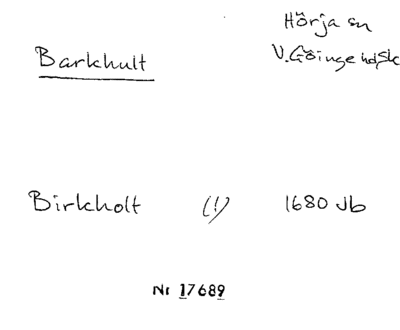 Hörja sn
Barkhult
V. Göinge hd, Sk
Birkholt (!) 1680 Jb
Nr 17689